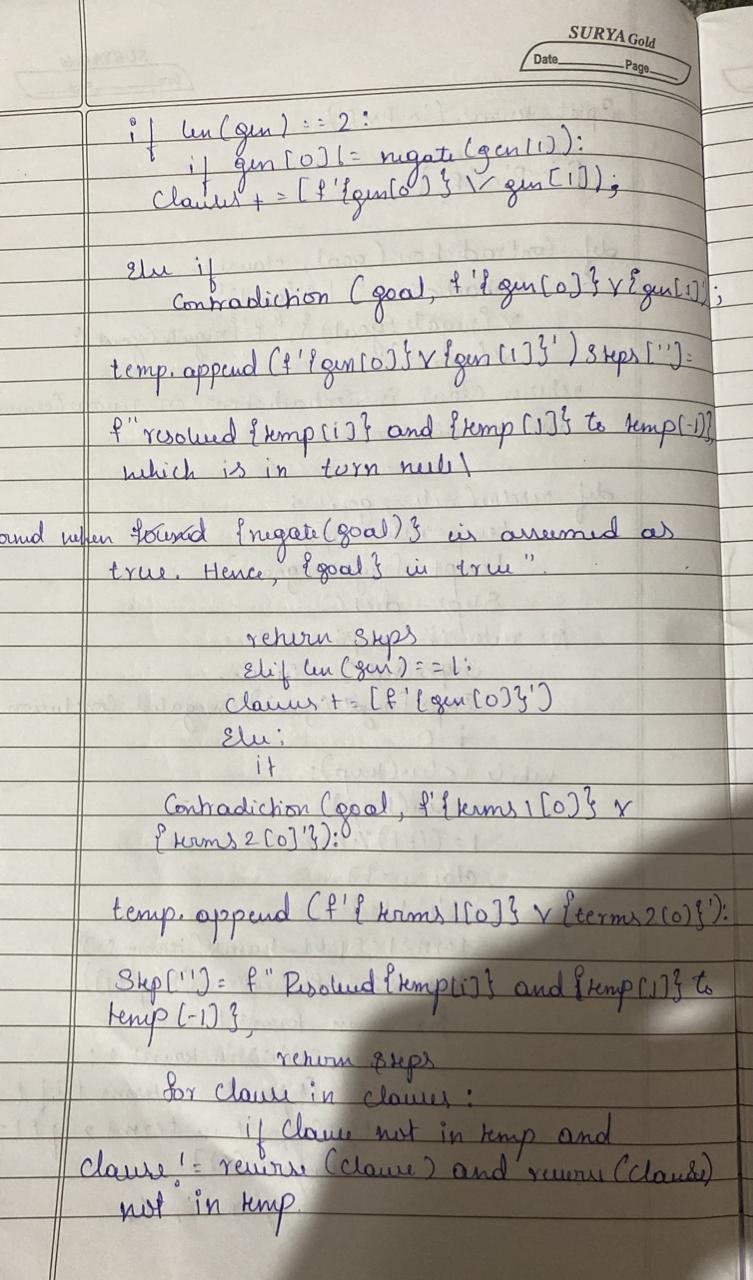 SURYA Gold
Date Page
if len(gen) == 2:
if gen[0] != negate(gen[1]):
clauses + = [f'{gen[0]} V gen[1]);
Else if
Contradiction (goal, f'{gen[0]} v {gen[1]);
temp. append (f'{gen[0]} v {gen[1]}') steps['']=
f"resolved {temp[i]} and {temp[j]} to temp[-1]},
which is in turn null\
and when found {negate(goal)} is assumed as
true. Hence, {goal} is true".
return steps
Elif len(gen) == 1:
clauses + = [f'{gen[0]}')
Else:
if
Contradiction (goal, f'{terms1[0]} v
{terms2[0]'}):
temp. append (f'{terms1[0]} v {terms2[0]}'):
Step['']= f" Resolved {temp[i]} and {temp[j]} to
temp[-1]},
return steps
for clause in clauses :
if clause not in temp and
clause != reverse (clause) and reverse (clause)
not in temp